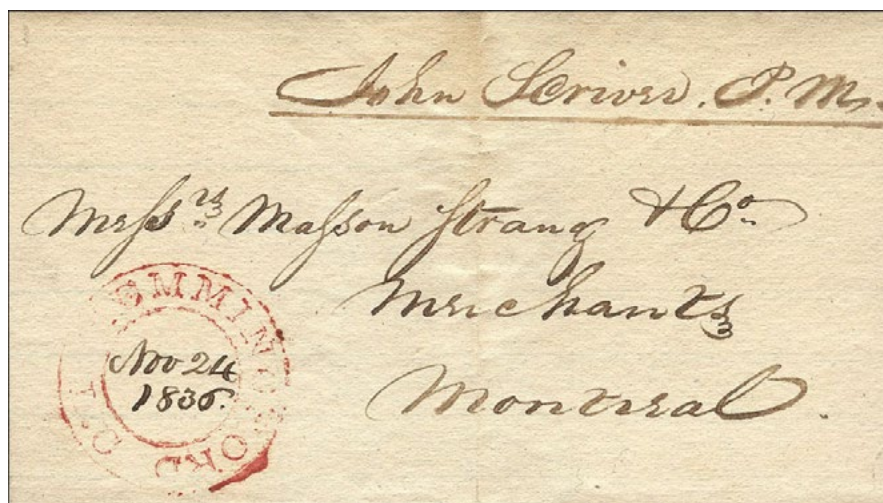 John Scriver. P. M.
Messrs. Masson Strang & Co.
Merchants
Montreal
HEMMINGSFORD L.C.
Nov 24
1836.